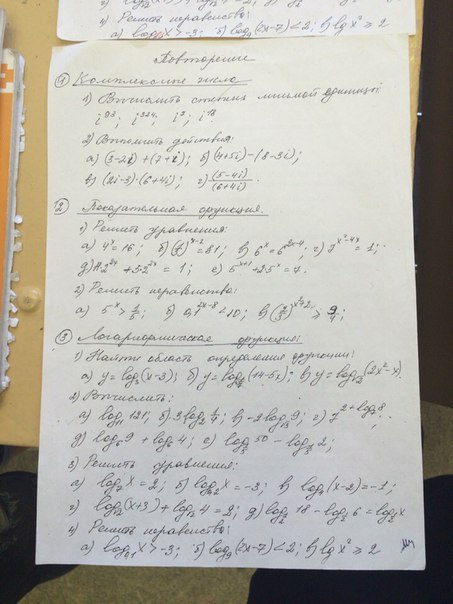 2) Решить неравенства:
а) log x > -3; б) log (2x-7) < 2; в) lg x² ≥ 2
Повторение
① Комплексные числа
1) Вычислить степень мнимой единицы:
i⁹³; i³²⁴; i²; i¹⁸
2) Выполнить действия:
а) (3-2i)+(7+i); б) (4+5i)-(8-3i);
в) (2i-3)·(6+4i); г) (5-4i)/(6+4i).
② Показательная функция.
1) Решить уравнения:
а) 4ˣ=16; =81; в) 6ˣ=6^(2x-4); г) 7^(x²-4x)=1;
= 1; е) 5^(x+1)+25ˣ=7.
2) Решить неравенства:
а) 5⁻ˣ > 1/5; б) 0,1^(2x-8) < 10; в) ≥ 9/4;
③ Логарифмическая функция:
1) Найти область определения функции:
а) y=log₅(x-3); б) y=log (14-5x); в) y=log (2x²-x)
2) Вычислить:
а) log₁₁ 121; б) 3 log₂ ¼; в) -2 log 9; г)
д) log₆ 9 + log₆ 4; е) log 50 - log 2;
3) Решить уравнения:
а) log₇ x = 2; б) log x = -3; в) log (x-2) = -1;
г) log₁₂(x+3) + log₁₂ 4 = 2; д) log₂ 18 - log₂ 6 = log₂ x
4) Решить неравенства:
а) log x > -3; б) log₉(2x-7) < 2; в) lg x² ≥ 2